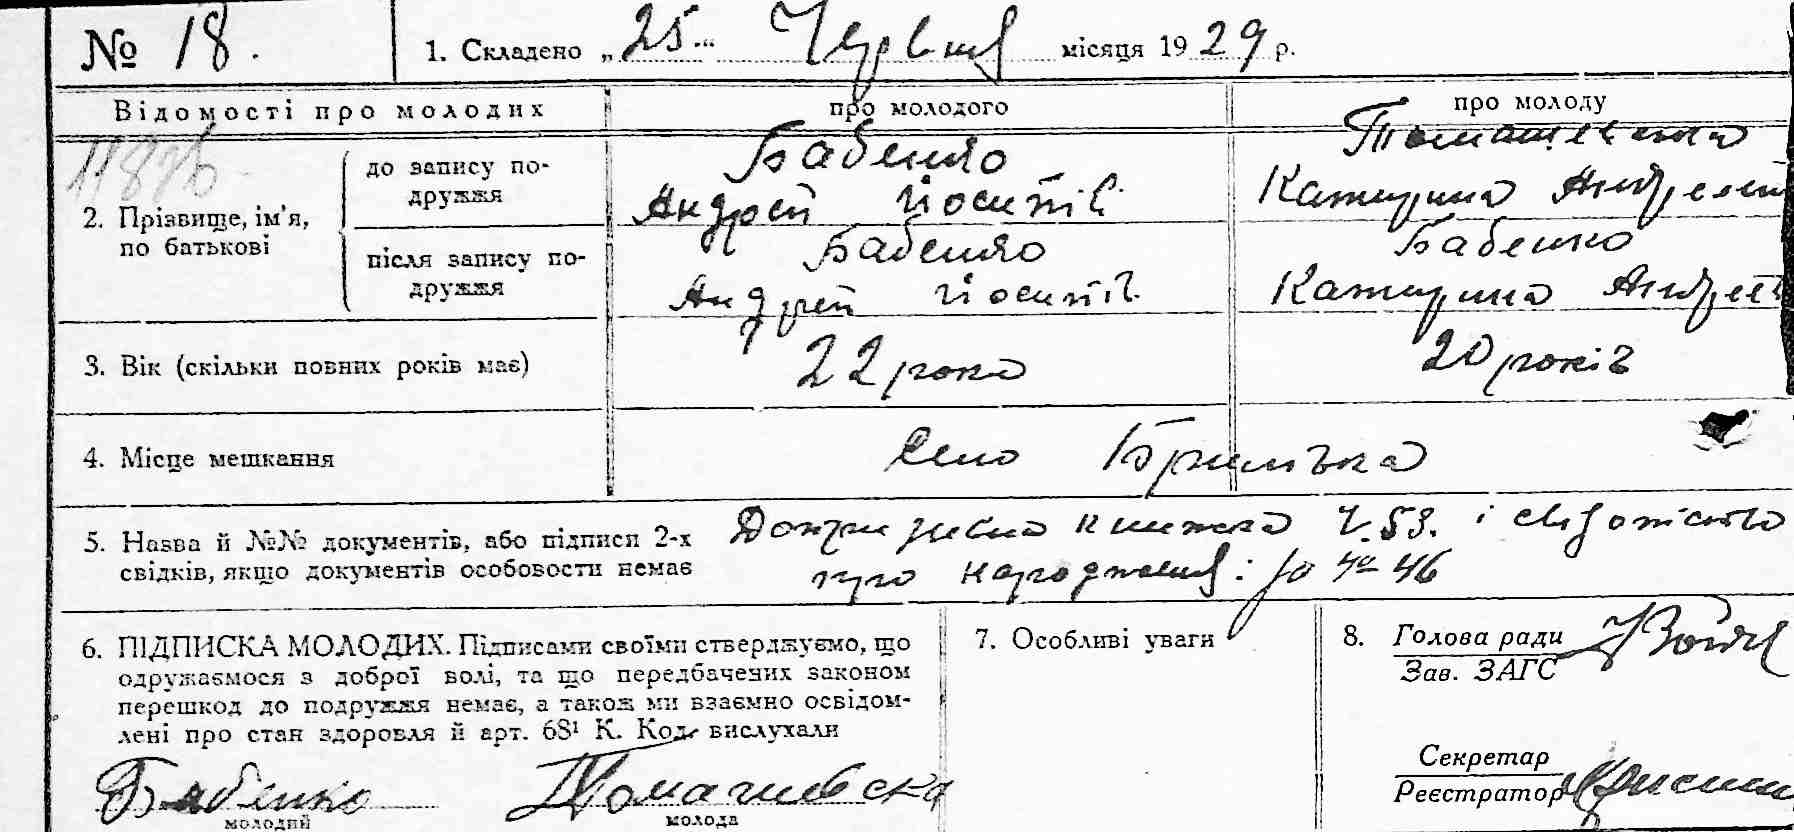 № 18.
1. Складено „25" Червня місяця 1929 р.
Відомості про молодих
про молодого
про молоду
2. Прізвище, ім'я, по батькові
до запису подружжя
Бабенко
Андрей Йосипів
Катирина
після запису подружжя
Бабенко
Андрей Йосипів
Бабенко
Катирина
3. Вік (скільки повних років має)
22 рока
20 років
4. Місце мешкання
Село
5. Назва й №№ документів, або підписи 2-х
свідків, якщо документів особовости немає
книжка Ч. 53. і
про народження: 46
6. ПІДПИСКА МОЛОДИХ. Підписами своїми стверджуємо, що
одружаємося з доброї волі, та що передбачених законом
перешкод до подружжя немає, а також ми взаємно освідом-
лені про стан здоровля й арт. 68¹ К. Код. вислухали
Бабенко
молодий
молода
7. Особливі уваги
8. Голова ради
Зав. ЗАГС
Секретар
Реєстратор